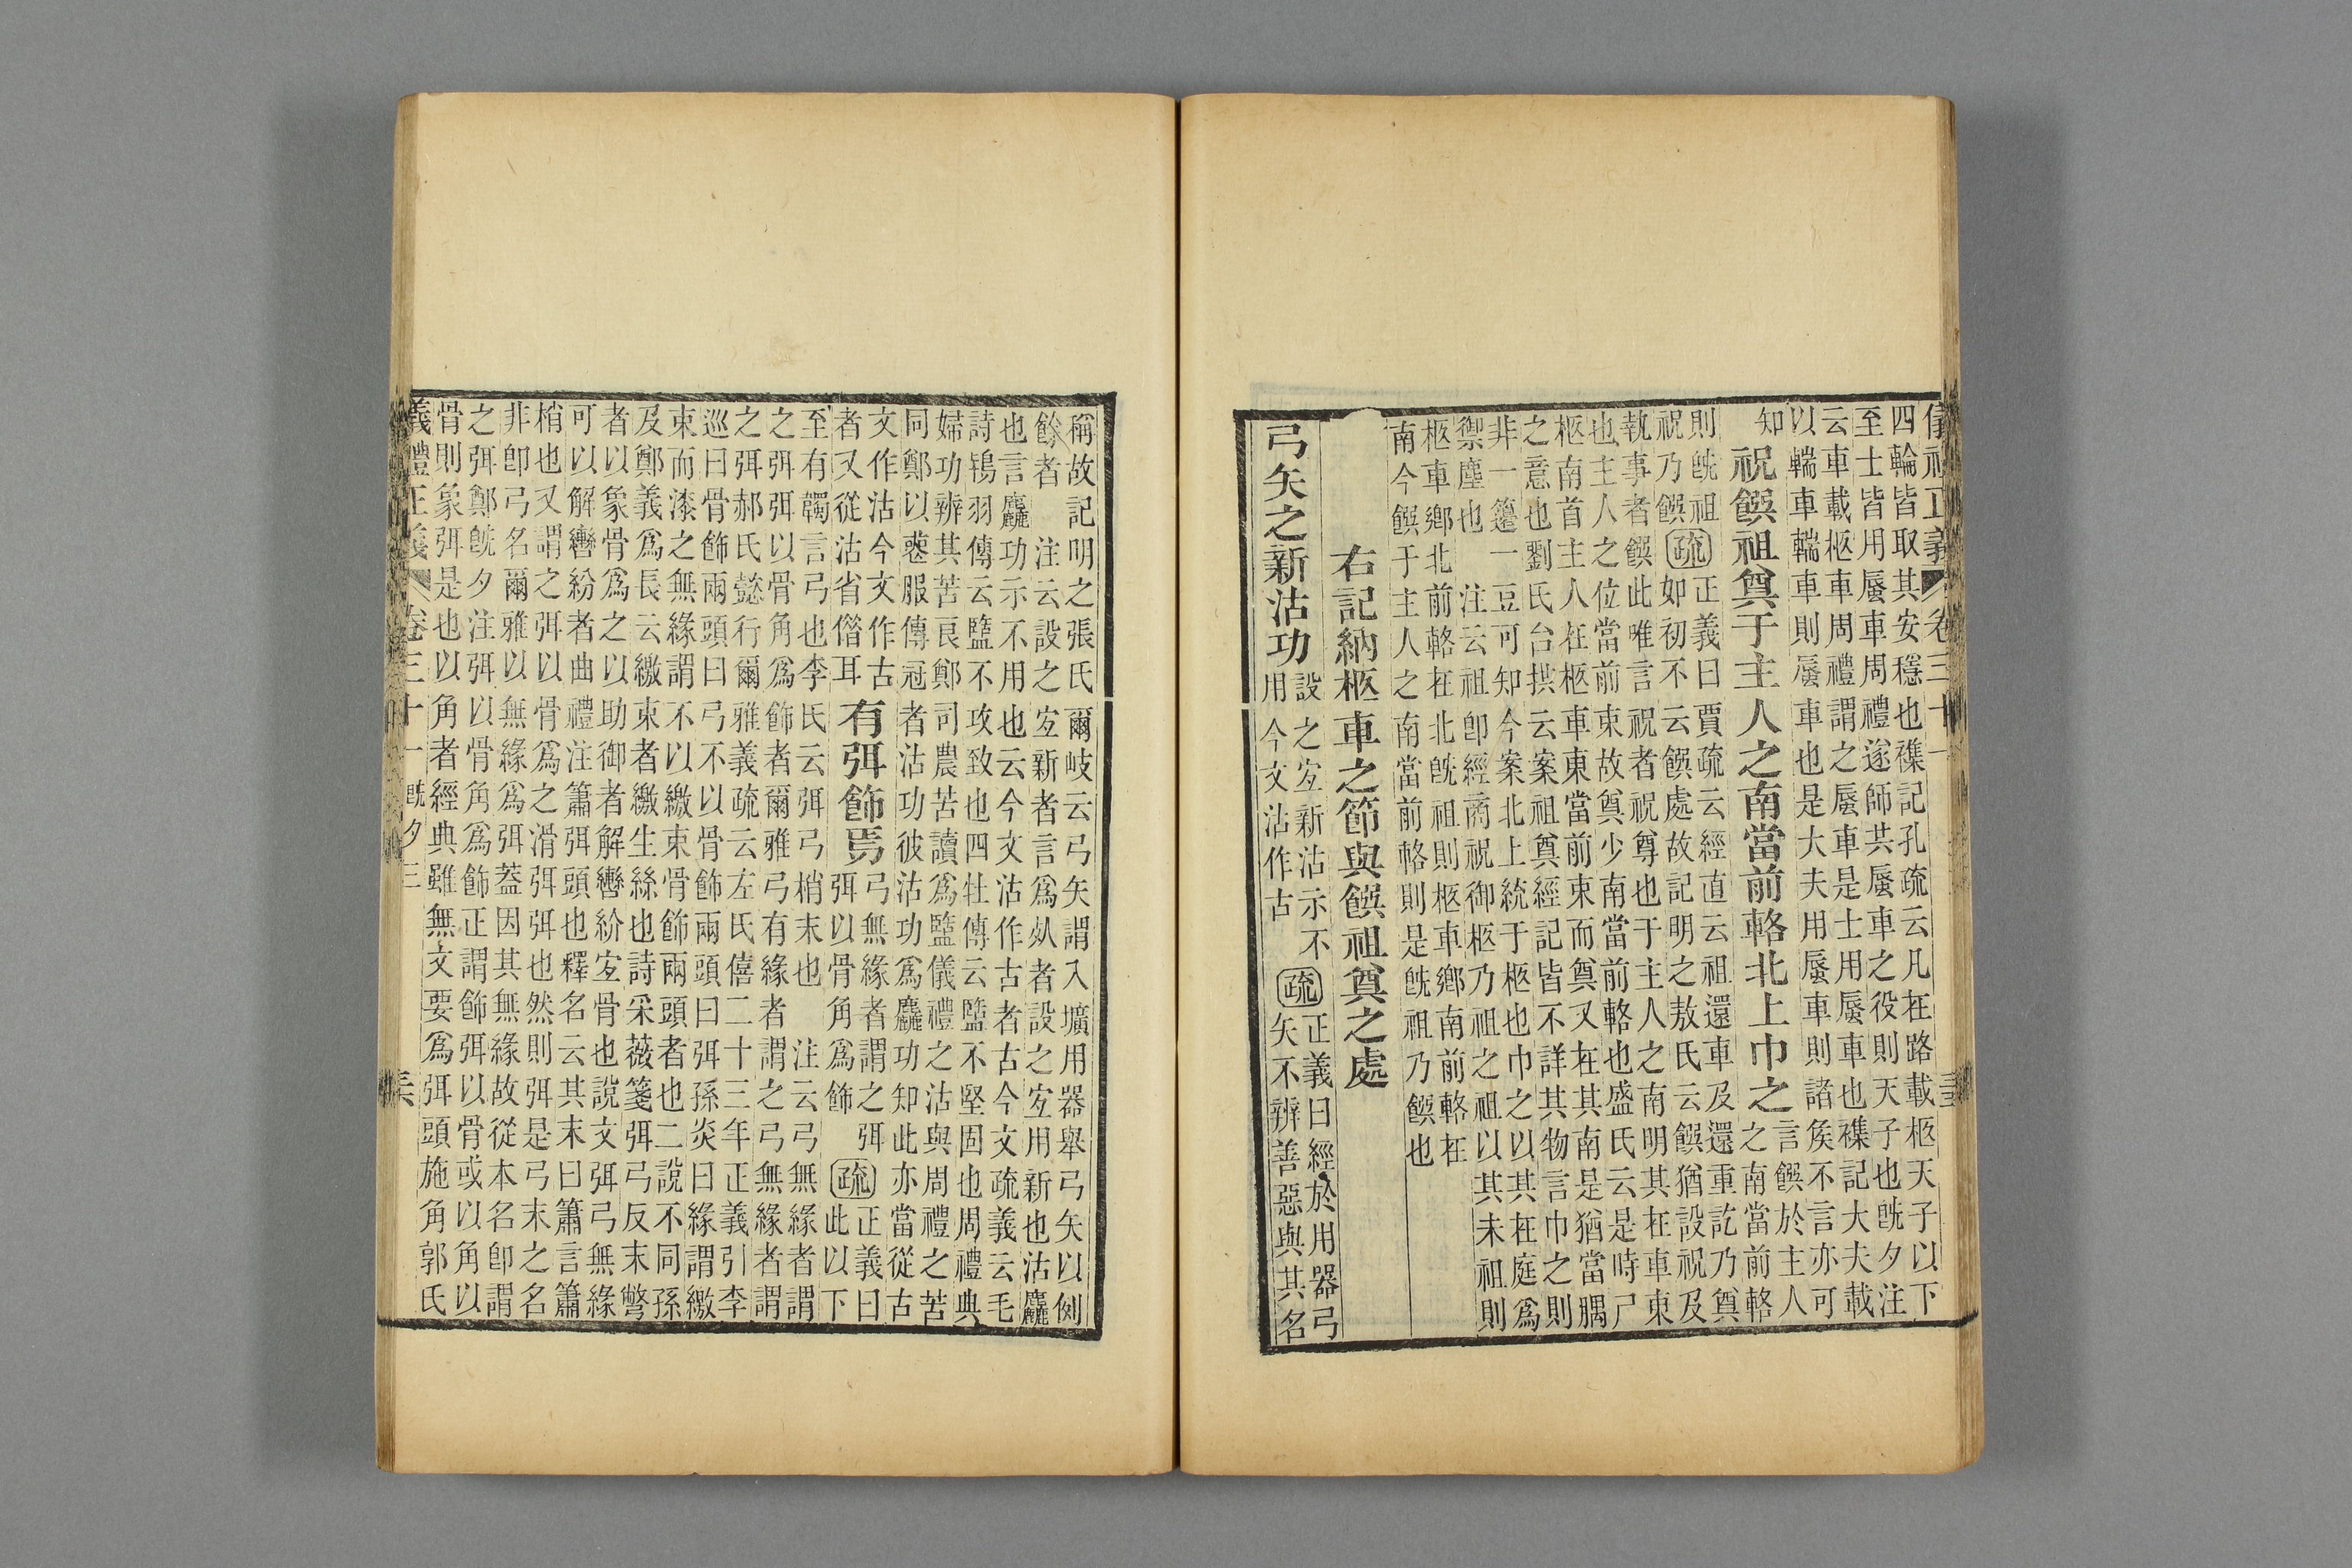 儀禮正義 卷三十一
四輪皆取其安穩也襍記孔疏云凡在路載柩天子以下
至士皆用蜃車周禮遂師共蜃車之役則天子也旣夕注
云車載柩車周禮謂之蜃車是士用蜃車也襍記大夫載
以輲車輲車則蜃車也是大夫用蜃車則諸矦不言亦可
知 祝饌祖奠于主人之南當前輅北上巾之 言饌於主人
之南當前輅
則旣祖
祝乃饌 疏 正義曰賈疏云經直云祖還車及還重訖乃奠
如初不云饌處故記明之敖氏云饌猶設祝及
執事者饌此唯言祝者祝尊也于主人之南明其在車東
也主人之位當前束故奠少南當前輅也盛氏云是時尸
柩南首主人在柩車東當前束而奠又在其南是猶當腢
之意也劉氏台拱云案祖奠經記皆不詳其物言巾之則
非一籩一豆可知今案北上統于柩也巾之以其在庭爲
禦塵也 注云祖卽經商祝御柩乃祖之祖以其未祖則
柩車鄉北前輅在北旣祖則柩車鄉南前輅在
南今饌于主人之南當前輅則是旣祖乃饌也
右記納柩車之節與饌祖奠之處
弓矢之新沽功 設之宜新沽示不
用今文沽作古 疏 正義曰經於用器弓
矢不辨善惡與其名
稱故記明之張氏爾岐云弓矢謂入壙用器舉弓矢以例
餘者 注云設之宜新者言爲死者設之宜用新也沽麤
也言麤功示不用也云今文沽作古者古今文疏義云毛
詩鴇羽傳云盬不攻致也四牡傳云盬不堅固也周禮典
婦功辨其苦良鄭司農苦讀爲盬儀禮之沽與周禮之苦
同鄭以䘮服傳冠者沽功彼沽功爲麤功知此亦當從古
文作沽今文作古
者又從沽省僭耳 有弭飾焉 弓無緣者謂之弭
弭以骨角爲飾 疏 正義曰
此以下
至有韣言弓也李氏云弭弓梢末也 注云弓無緣者謂
之弭弭以骨角爲飾者爾雅弓有緣者謂之弓無緣者謂
之弭郝氏懿行爾雅義疏云左氏僖二十三年正義引李
巡曰骨飾兩頭曰弓不以骨飾兩頭曰弭孫炎曰緣謂繳
束而漆之無緣謂不以繳束骨飾兩頭者也二說不同孫
及鄭義爲長云繳束者繳生絲也詩采薇箋弭弓反末彆
者以象骨爲之以助御者解轡紛宜骨也說文弭弓無緣
可以解轡紛者曲禮注簫弭頭也釋名云其末曰簫言簫
梢也又謂之弭以骨爲之滑弭弭也然則弭是弓末之名
非卽弓名爾雅以無緣爲弭蓋因其無緣故從本名卽謂
之弭鄭旣夕注弭以骨角爲飾正謂飾弭以骨或以角以
骨則象弭是也以角者經典雖無文要爲弭頭施角郭氏
義禮正義 卷三十一 旣夕三